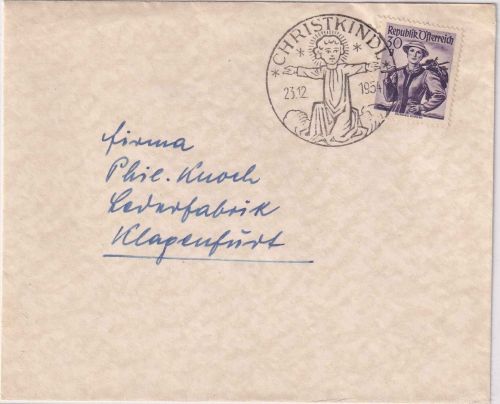 * CHRISTKINDL *
23.12 1954
Republik Österreich
30
Firma
Phil. Knoch
Lederfabrik
Klagenfurt